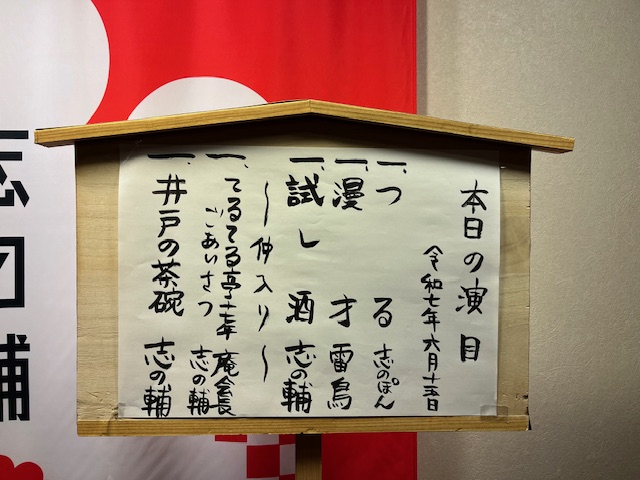 本日の演目
令和七年六月十五日
一、つる 志のぽん
一、漫才 雷鳥
一、試し酒 志の輔
〜仲入り〜
一、てるてる亭十七年ごあいさつ 庵會長 志の輔
一、井戸の茶碗 志の輔
志の輔